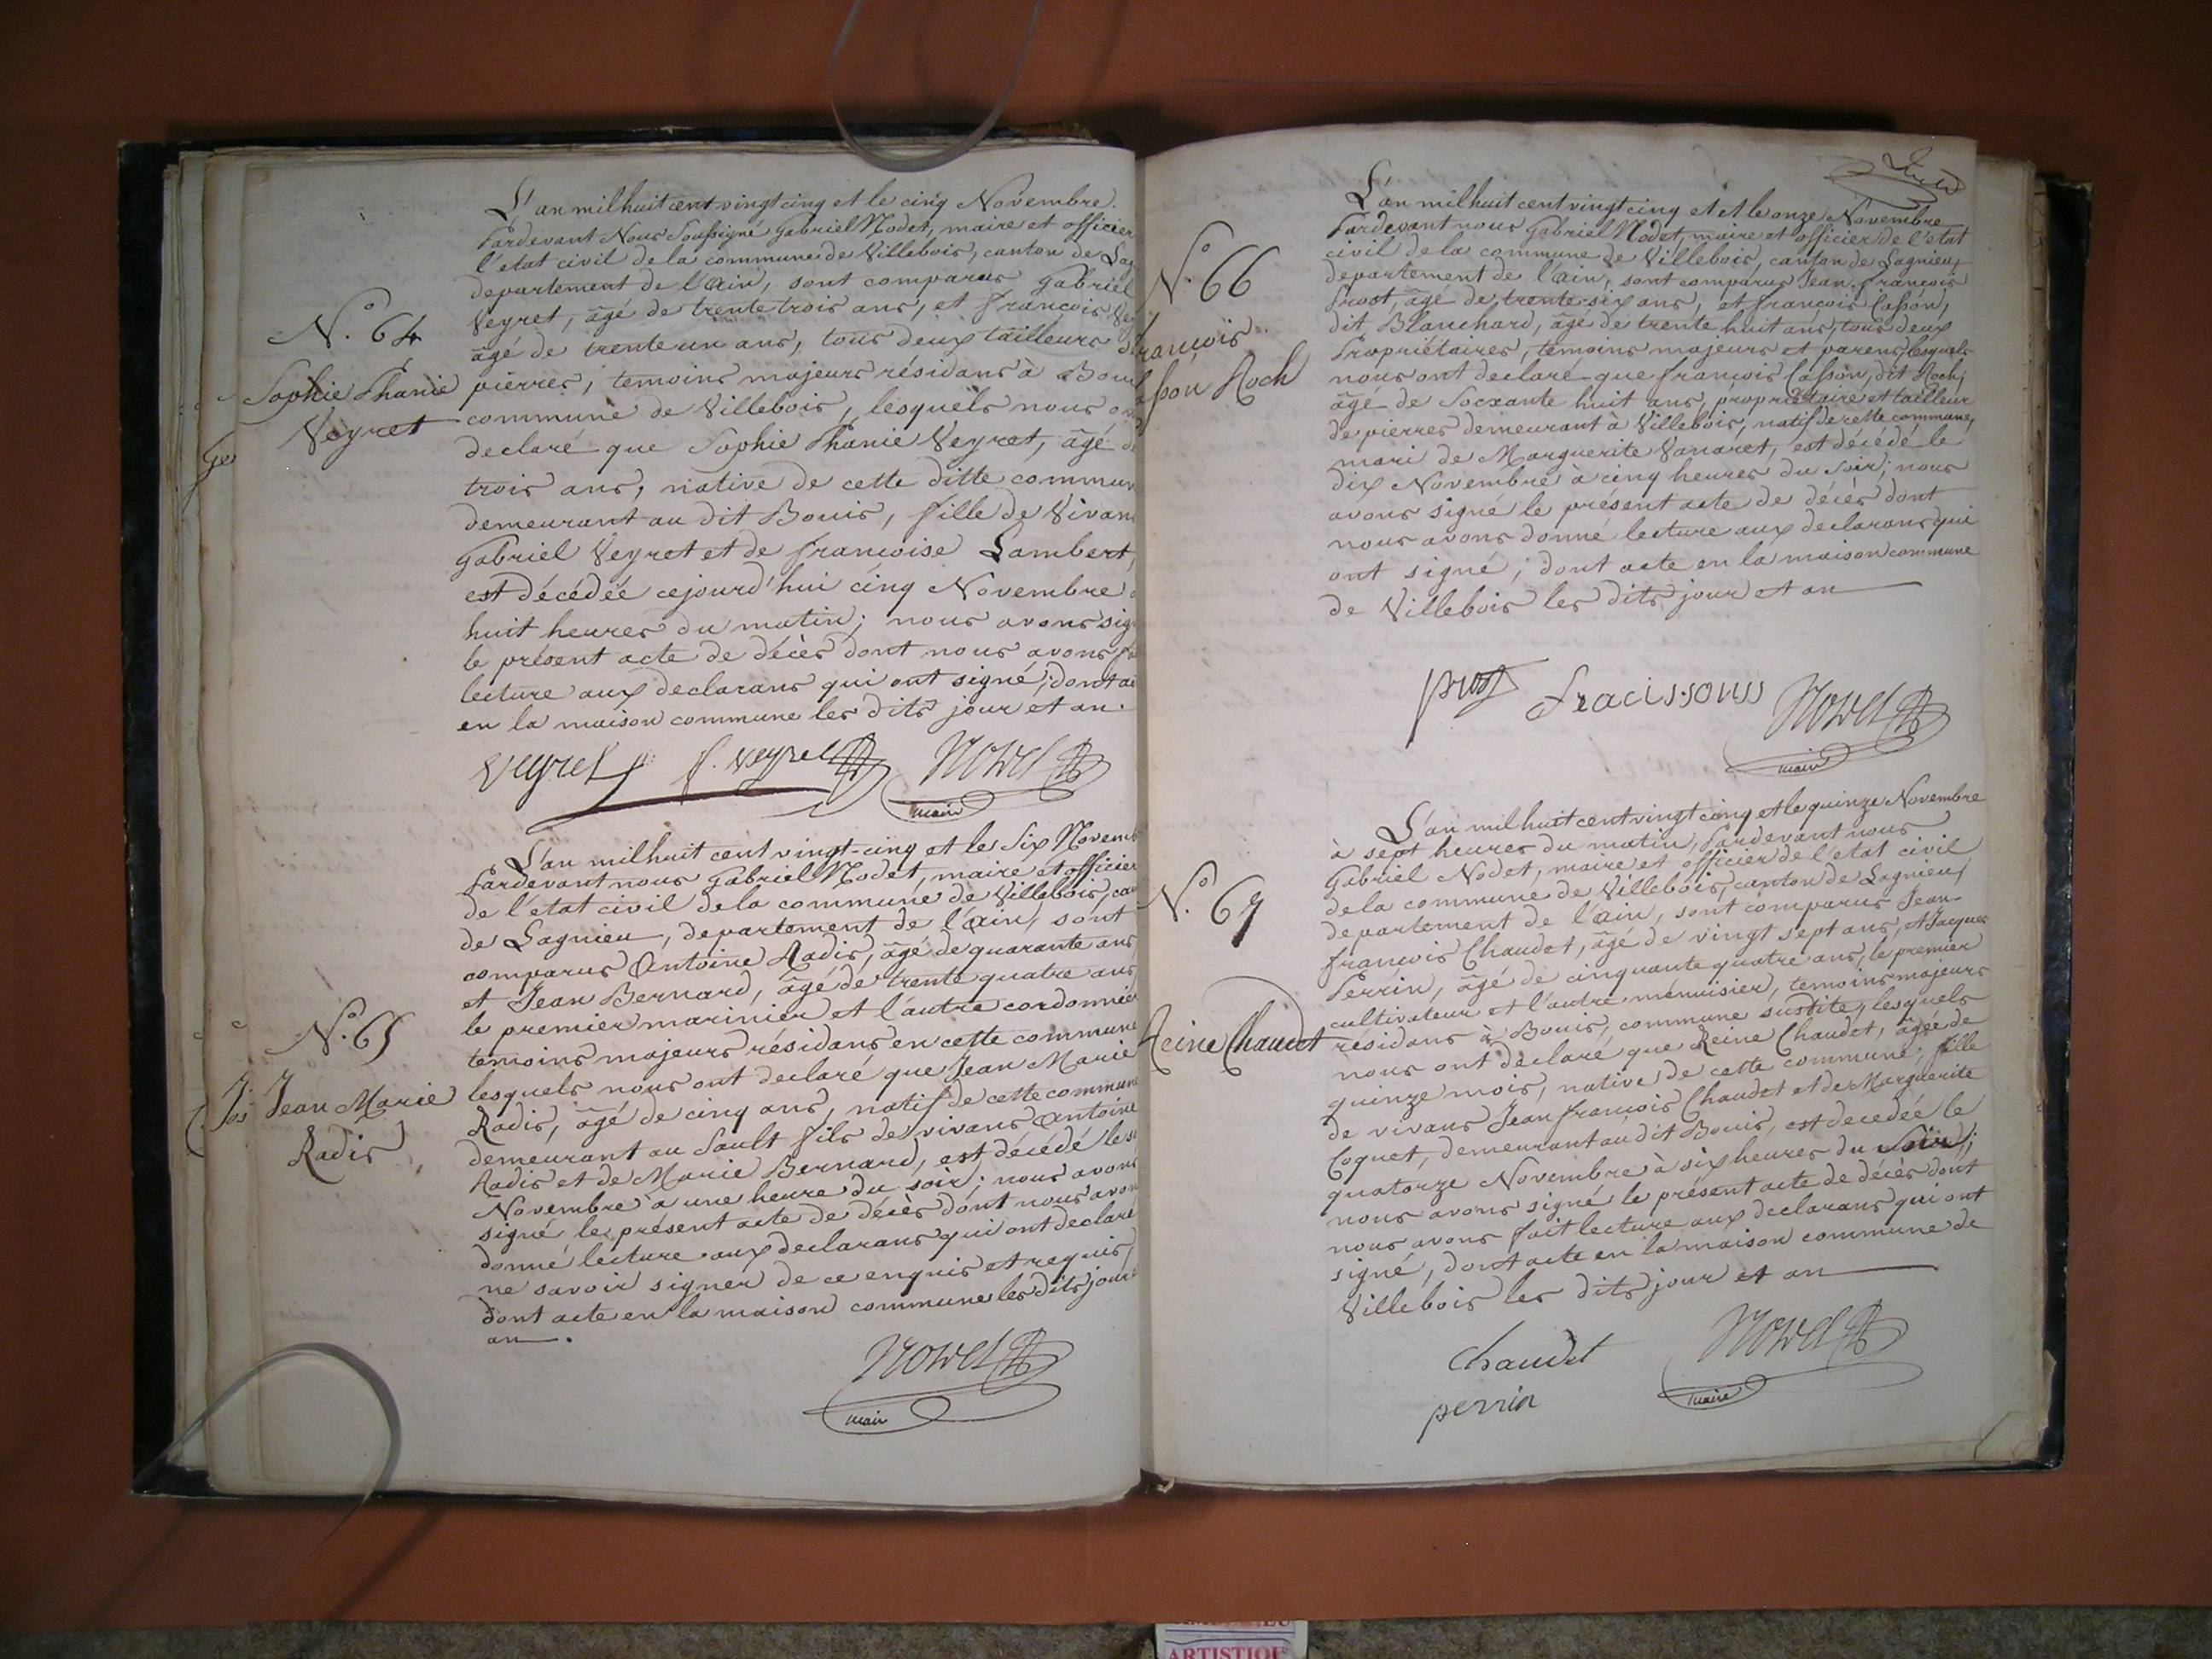 L'an mil huit cent vingt cinq et le cinq Novembre.
Pardevant Nous Soussigné Gabriel Nodet, maire et officier
l'etat civil de la commune de Villebois, canton de Lag
departement de l'ain, sont comparus Gabriel
Veyret, âgé de trente trois ans, et françois Vey
âgé de trente un ans, tous deux tailleurs d
pierres, temoins majeurs résidans à Boui
commune de Villebois, lesquels nous on
declaré que Sophie Phanie Veyret, âgé d
trois ans, native de cette ditte commun
demeurant au dit Bouis, fille de Vivan
Gabriel Veyret et de françoise Lambert,
est décédée cejourd'hui cinq Novembre
huit heures du matin; nous avons sig
le présent acte de décès dont nous avons
lecture aux declarans qui ont signé; dont ac
en la maison commune les dits jour et an.
N.° 64
Sophie Phanie
Veyret
Veyret f. veyret Nodet
maire
L'an mil huit cent vingt-cinq et le Six Novemb
Pardevant nous Gabriel Nodet, maire et officier
de l'etat civil de la commune de Villebois, can
de Lagnieu, departement de l'ain, sont
comparus Antoine Radis, âgé de quarante ans
et Jean Bernard, âgé de trente quatre ans
le premier marinier et l'autre cordonnier
temoins majeurs résidans en cette commune
lesquels nous ont declaré que Jean Marie
Radis, âgé de cinq ans, natif de cette commune
demeurant au Sault fils de vivans Antoine
Radis et de Marie Bernard, est décédé le s
Novembre à une heure du soir; nous avons
signé le présent acte de décès dont nous avon
donné lecture aux declarans qui ont declaré
ne savoir signer de ce enquis et requis,
dont acte en la maison commune les dits jour e
an.
N.° 65
Jean Marie
Radis
Nodet
maire
L'an mil huit cent vingt cinq et et le onze Novembre
Pardevant nous Gabriel Nodet, maire et officier de l'etat
civil de la commune de Villebois, canton de Lagnieu,
departement de l'ain, sont comparus Jean françois
Prost, âgé de trente-six ans, et françois Casson,
dit Blanchard, âgé de trente huit ans, tous deux
Propriétaires, temoins majeurs et parens, lesquels
nous ont declaré que françois Casson, dit Roch,
âgé de Soixante huit ans, propriétaire et tailleur
de pierres demeurant à Villebois, natif de cette commune,
mari de Marguerite Vanaret, est décédé le
dix Novembre à cinq heures du Soir; nous
avons signé le présent acte de décès dont
nous avons donné lecture aux declarans qui
ont signé; dont acte en la maison commune
de Villebois les dits jour et an
N.° 66
françois
asson Roch
prost Nodet
maire
L'an mil huit cent vingt cinq et le quinze Novembre
à sept heures du matin, Pardevant nous
Gabriel Nodet, maire et officier de l'etat civil
de la commune de Villebois, canton de Lagnieu,
departement de l'ain, sont comparus Jean
françois Chaudet, âgé de vingt sept ans, et Jacques
Perrin, âgé de cinquante quatre ans, le premier
cultivateur et l'autre menuisier, temoins majeurs
résidans à Bouis, commune susdite, lesquels
nous ont declaré que Reine Chaudet, âgée de
quinze mois, native de cette commune, fille
de vivans Jean françois Chaudet et de Marguerite
Coquet, demeurant au dit Bouis, est decedée le
quatorze Novembre à six heures du Soir;
nous avons signé le présent acte de décès dont
nous avons fait lecture aux declarans qui ont
signé, dont acte en la maison commune de
Villebois les dits jour et an
N.° 67
Reine Chaudet
Chaudet Nodet
perrin maire
ARTISTIQUE